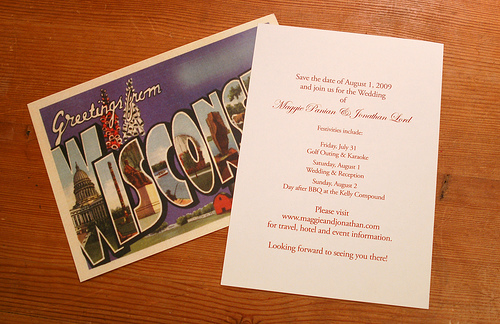 Greetings from
WISCONS
Save the date of August 1, 2009
and join us for the Wedding
of
Maggie Panian & Jonathan Lord
Festivities include:
Friday, July 31
Golf Outing & Karaoke
Saturday, August 1
Wedding & Reception
Sunday, August 2
Day after BBQ at the Kelly Compound
Please visit
www.maggieandjonathan.com
for travel, hotel and event information.
Looking forward to seeing you there!